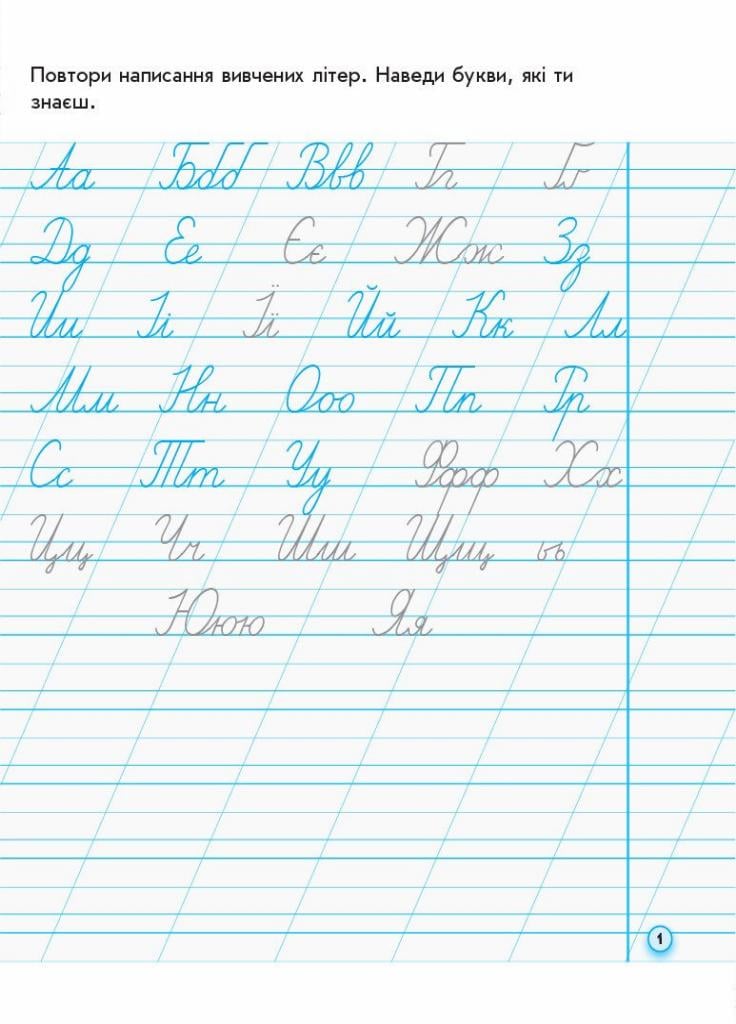 Повтори написання вивчених літер. Наведи букви, які ти
знаєш.
Аа Ббб Ввв Гг Ґґ
Дд Ее Єє Жж Зз
Ии Іі Її Йй Кк Лл
Мм Нн Оо Пп Рр
Сс Тт Уу Ффф Хх
Цц Чч Шш Щщ ьь
Ююю Яя
1